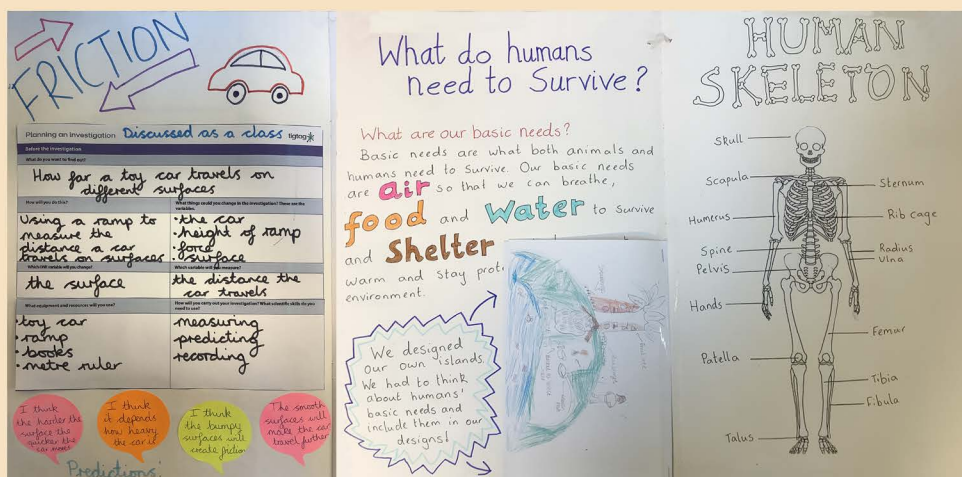 FRICTION
Planning an Investigation Discussed as a class tigtag
Before the Investigation
What do you want to find out?
How far a toy car travels on
different surfaces
How will you do this?
Using a ramp to
measure the
distance a car
travels on surfaces
What things could you change in the investigation? These are the
variables.
• the car
• height of ramp
• force
• surface
Which ONE variable will you change?
the surface
Which variable will you measure?
the distance the
car travels
What equipment and resources will you use?
• toy car
• ramp
• books
• metre ruler
How will you carry out your investigation? What scientific skills do you
need to use?
measuring
predicting
recording
I think
the harder the
surface the
quicker the
car moves
I think
it depends
how heavy
the car is
I think
the bumpy
surfaces will
create friction
The smooth
surfaces will
make the car
travel further
Predictions
What do humans
need to Survive?
What are our basic needs?
Basic needs are what both animals and
humans need to survive. Our basic needs
are air so that we can breathe,
food and Water to survive
and Shelter
warm and stay prote
environment.
We designed
our own islands.
We had to think
about humans'
basic needs and
include them in our
designs!
HUMAN
SKELETON
Skull
Scapula
Sternum
Humerus
Rib cage
Spine
Radius
Ulna
Pelvis
Hands
Femur
Patella
Tibia
Fibula
Talus